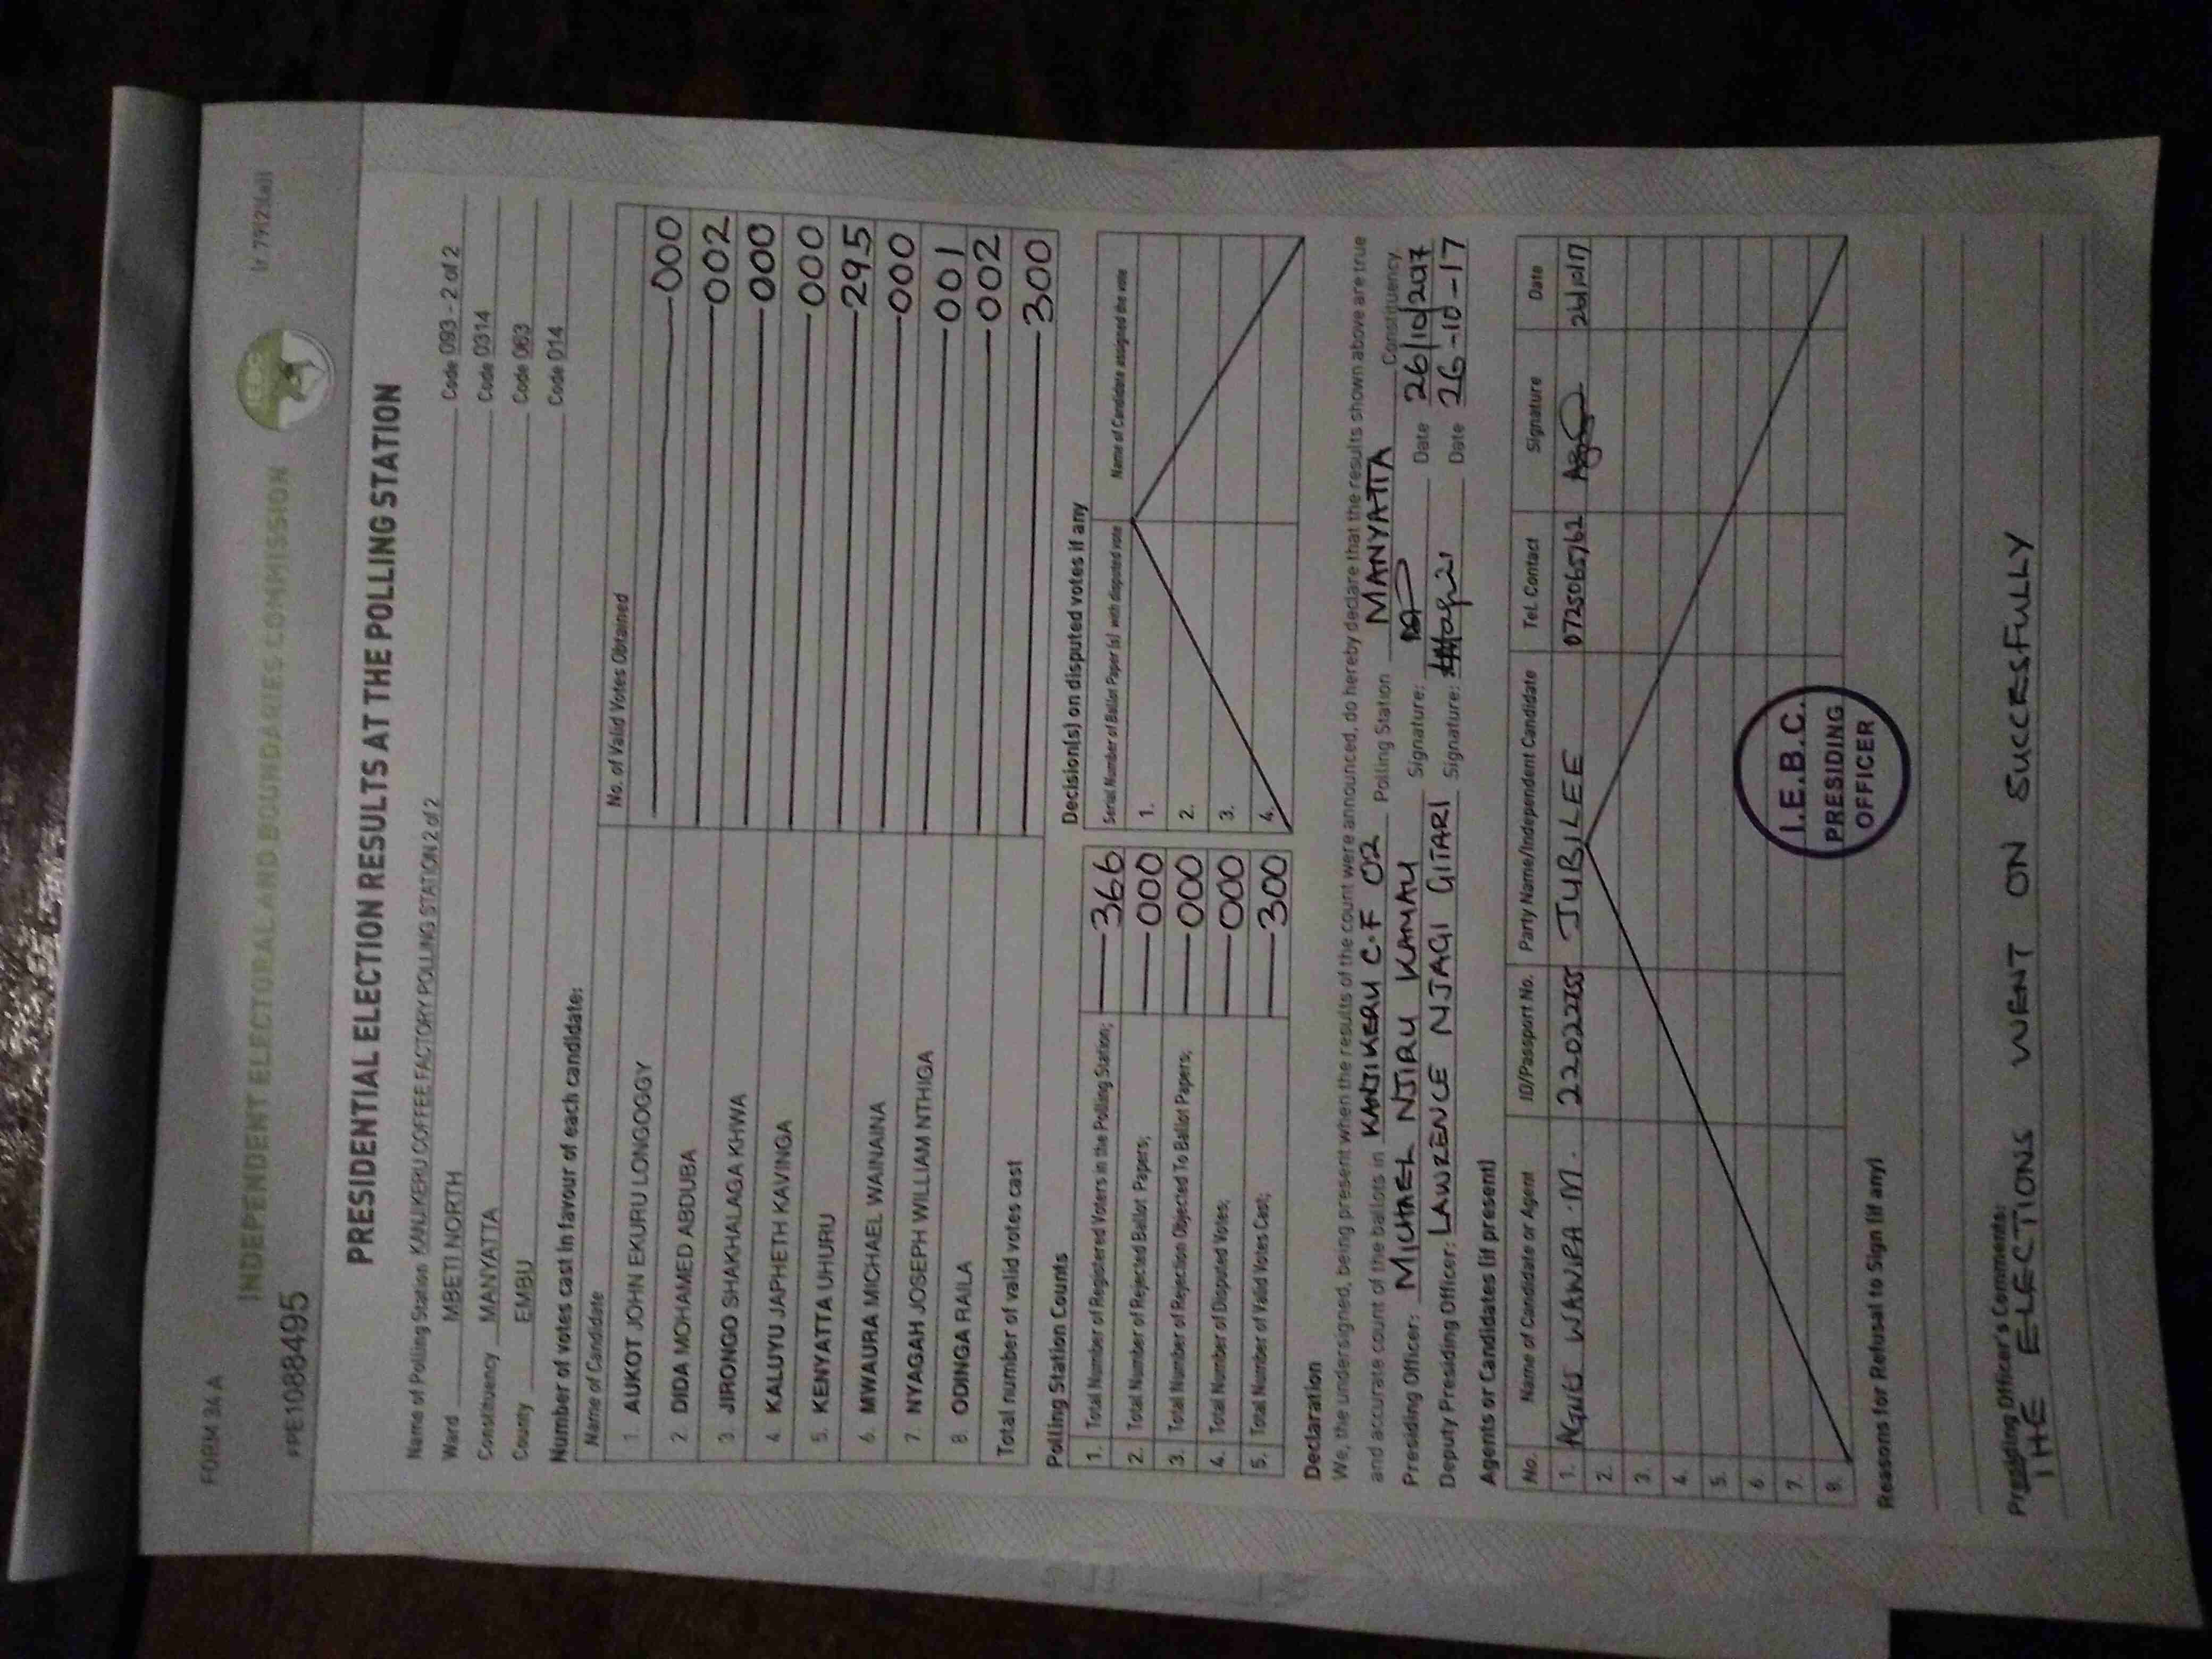 FORM 34 A
INDEPENDENT ELECTORAL AND BOUNDARIES COMMISSION
IEBC
PPE1088495
PRESIDENTIAL ELECTION RESULTS AT THE POLLING STATION
Name of Polling Station KANJIKERU COFFEE FACTORY POLLING STATION 2 of 2 Code 093 - 2 of 2
Ward MBETI NORTH Code 0314
Constituency MANYATTA Code 063
County EMBU Code 014
Number of votes cast in favour of each candidate:
Name of Candidate No. of Valid Votes Obtained
1. AUKOT JOHN EKURU LONGOGGY 000
2. DIDA MOHAMED ABDUBA 002
3. JIRONGO SHAKHALAGA KHWA 000
4. KALUYU JAPHETH KAVINGA 000
5. KENYATTA UHURU 295
6. MWAURA MICHAEL WAINAINA 000
7. NYAGAH JOSEPH WILLIAM NTHIGA 001
8. ODINGA RAILA 002
Total number of valid votes cast 300
Polling Station Counts
1. Total Number of Registered Voters in the Polling Station; 366
2. Total Number of Rejected Ballot Papers; 000
3. Total Number of Rejection Objected To Ballot Papers; 000
4. Total Number of Disputed Votes; 000
5. Total Number of Valid Votes Cast; 300
Decision(s) on disputed votes if any
Serial Number of Ballot Paper (s) with disputed vote Name of Candidate assigned the vote
1.
2.
3.
4.
Declaration
We, the undersigned, being present when the results of the count were announced, do hereby declare that the results shown above are true
and accurate count of the ballots in KANJIKERU C.F 02 Polling Station MANYATTA Constituency.
Presiding Officer: MICHAEL NJIRU KAMAU Signature: Date 26/10/2017
Deputy Presiding Officer: LAWRENCE NJAGI GITARI Signature: Date 26-10-17
Agents or Candidates (if present)
No. Name of Candidate or Agent ID/Passport No. Party Name/Independent Candidate Tel. Contact Signature Date
1. AGNES WANIRA .M. JUBILEE 0725065762 26/10/17
2.
3.
4.
5.
6
7.
8.
I.E.B.C.
PRESIDING
OFFICER
Reasons for Refusal to Sign (if any)
Presiding Officer's Comments:
THE ELECTIONS WENT ON SUCCESFULLY